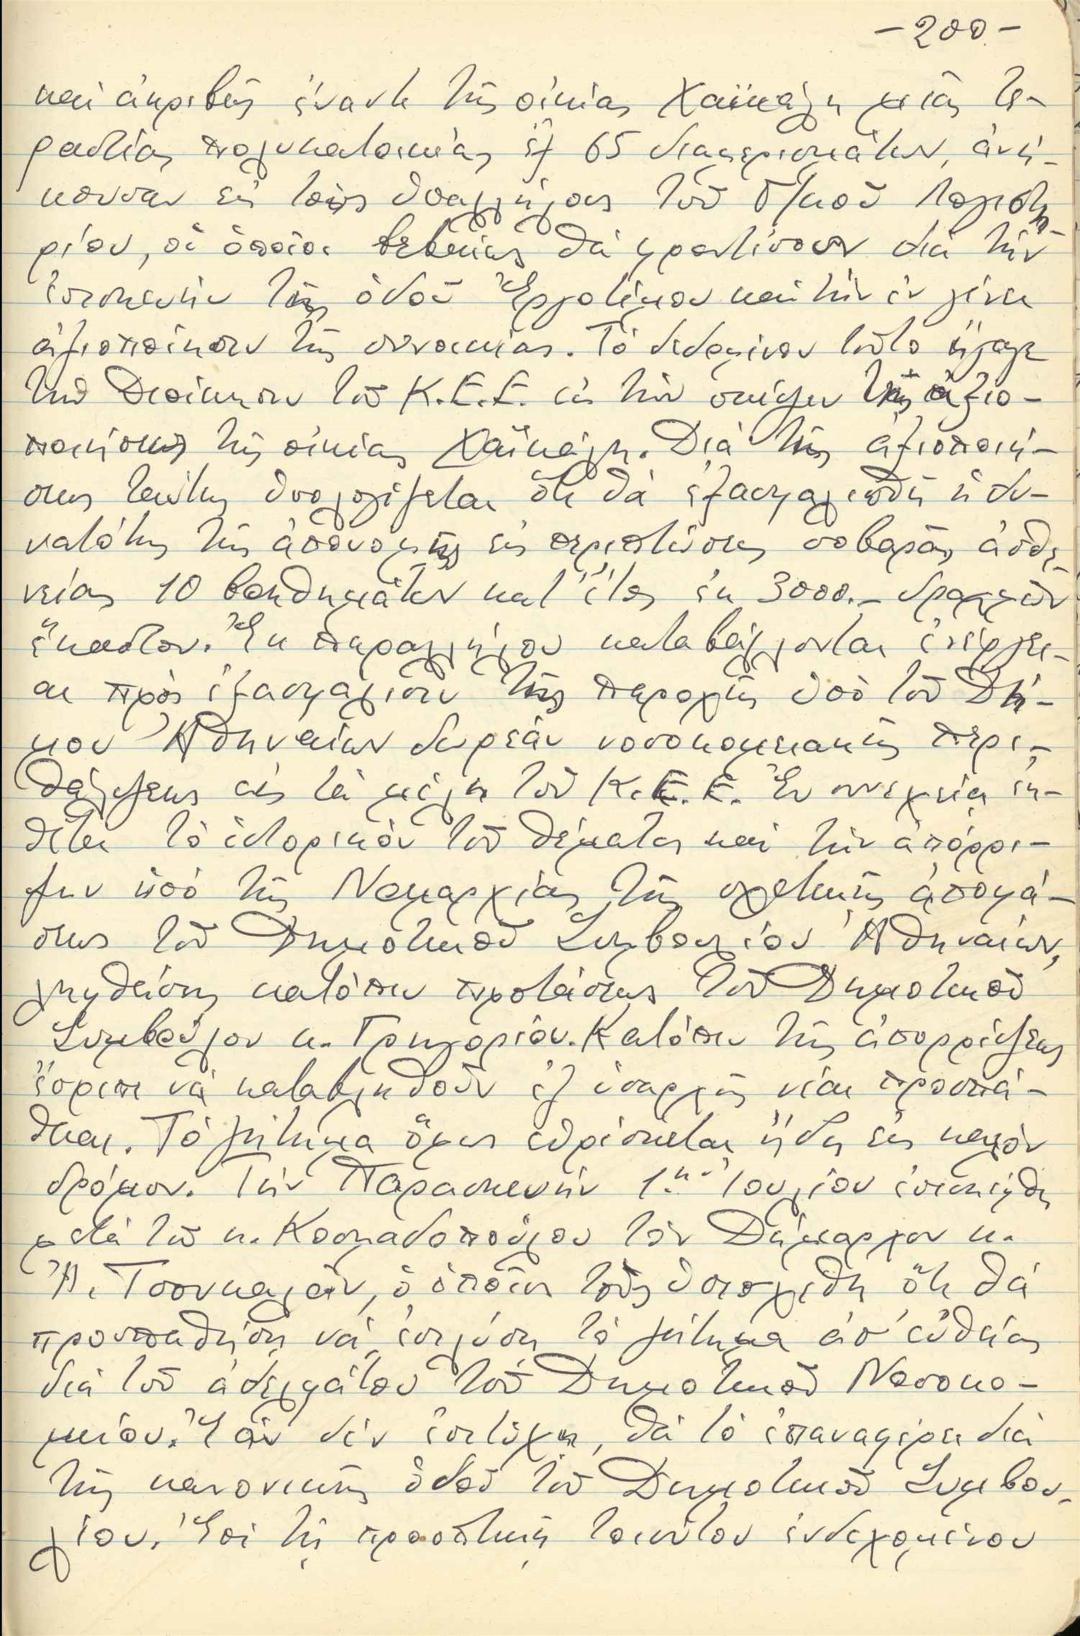 -200-
καί ἀκριβῶς ἔναντι τῆς οἰκίας Χαϊκάλη μιᾶς τε-
ραστίας πολυκατοικίας ἐξ 65 διαμερισμάτων, ἀνή-
κουσαν εἰς τούς ὑπαλλήλους τοῦ Γ/κοῦ Λογιστη-
ρίου, οἱ ὁποῖοι βεβαίως θά φροντίσουν διά τήν
ἐπισκευήν τῆς ὁδοῦ Ἐργοτίμου καί τήν ἐν γένει
ἀξιοποίησιν τῆς συνοικίας. Τό δεδομένον τοῦτο ἤγαγε
τήν Διοίκησιν τοῦ Κ.Ε.Ε. εἰς τήν σκέψιν τῆς ἀξιο-
ποιήσεως τῆς οἰκίας Χαϊκάλη. Διά τῆς ἀξιοποιή-
σεως ταύτης ὑπολογίζεται ὅτι θά ἐξασφαλισθῇ ἡ δυ-
νατότης τῆς ἀπονομῆς εἰς περιπτώσεις σοβαρᾶς ἀσθε-
νείας 10 βοηθημάτων κατ' ἔτος ἐκ 3000.- δραχμῶν
ἕκαστον. Ἐκ παραλλήλου καταβάλλονται ἐνέργει-
αι πρός ἐξασφάλισιν τῆς παροχῆς ὑπό τοῦ Δή-
μου Ἀθηναίων δωρεάν νοσοκομειακῆς περι-
θάλψεως εἰς τά μέλη τοῦ Κ.Ε.Ε. Ἐν συνεχείᾳ ἐκ-
θέτει τό ἱστορικόν τοῦ θέματος καί τήν ἀπόρρι-
ψιν ὑπό τῆς Νομαρχίας τῆς σχετικῆς ἀποφά-
σεως τοῦ Δημοτικοῦ Συμβουλίου Ἀθηναίων,
ληφθείσης κατόπιν προτάσεως τοῦ Δημοτικοῦ
Συμβούλου κ. Γρηγορίου. Κατόπιν τῆς ἀπορρίψεως
ἔπρεπε νά καταβληθοῦν ἐξ ὑπαρχῆς νέαι προσπά-
θειαι. Τό ζήτημα ὅμως εὑρίσκεται ἤδη εἰς καλόν
δρόμον. Τήν Παρασκευήν 1ην Ἰουλίου ἐπεσκέφθη
μετά τοῦ κ. Κοσμαδοπούλου τόν Δήμαρχον κ.
Ἀ. Τσουκαλᾶν, ὁ ὁποῖος τούς ὑπεσχέθη ὅτι θά
προσπαθήσῃ νά ἐπιλύσῃ τό ζήτημα ἀπ' εὐθείας
διά τοῦ ἀδελφάτου τοῦ Δημοτικοῦ Νοσοκο-
μείου. Ἐάν δέν ἐπιτύχῃ, θά τό ἐπαναφέρει διά
τῆς κανονικῆς ὁδοῦ τοῦ Δημοτικοῦ Συμβου-
λίου. Ἐπί τῇ προοπτικῇ τοιούτου ἐνδεχομένου